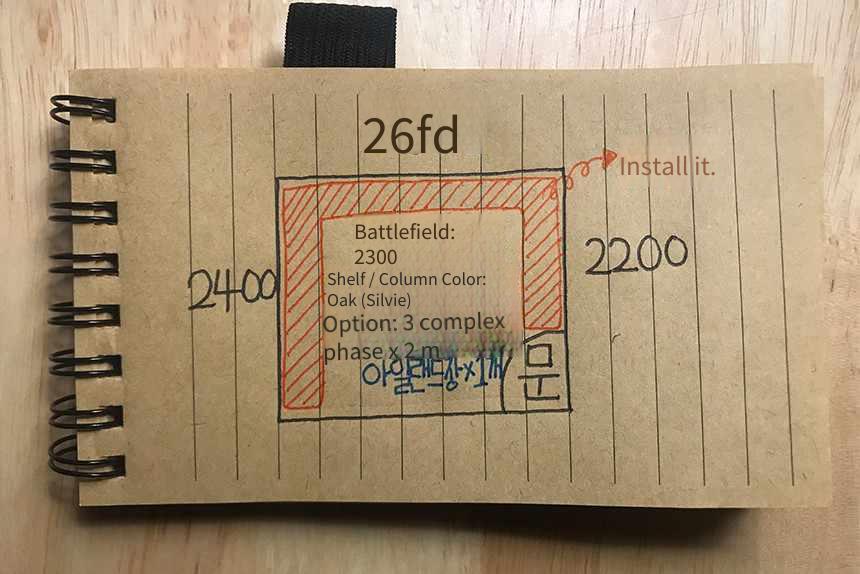 26fd
Install it.
Battlefield:
2300
2200
Shelf / Column Color:
2400
Oak (Silvie)
Option: 3 complex
phase x 2 m
아일랜드장x1개
문